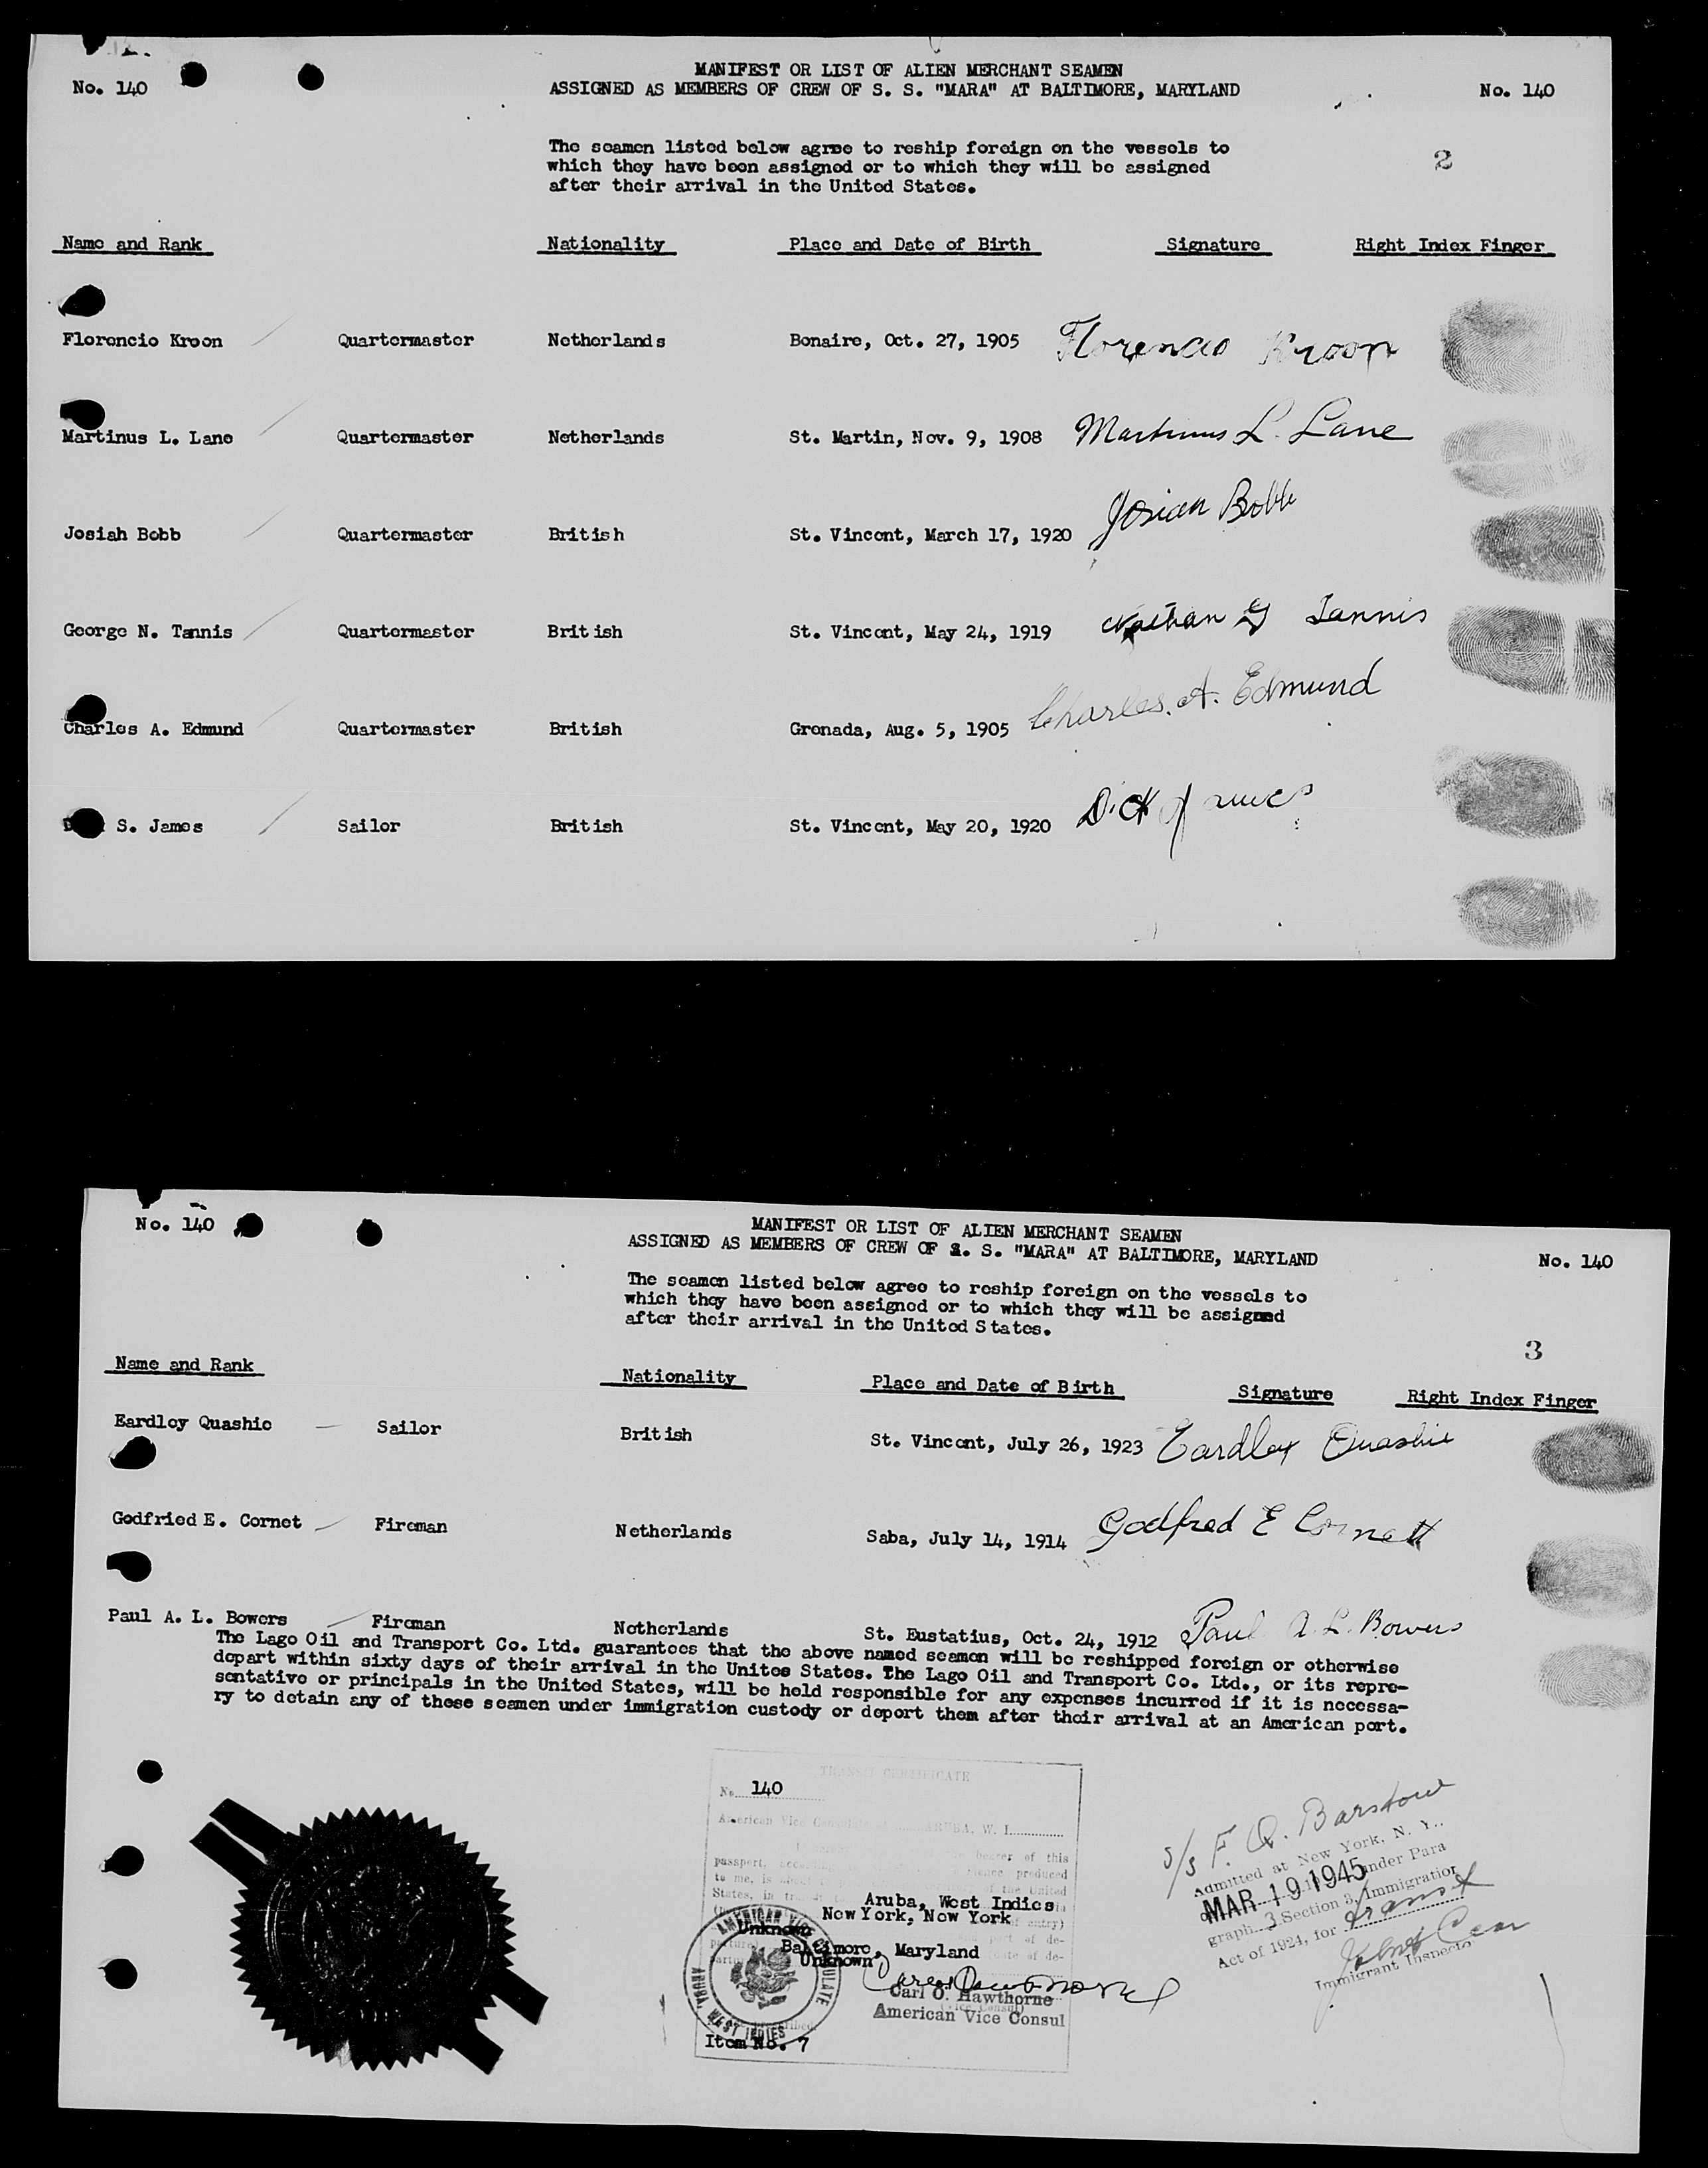 No. 140
MANIFEST OR LIST OF ALIEN MERCHANT SEAMEN
ASSIGNED AS MEMBERS OF CREW OF S. S. "MARA" AT BALTIMORE, MARYLAND
No. 140
The seamen listed below agree to reship foreign on the vessels to
which they have been assigned or to which they will be assigned
after their arrival in the United States.
2
Name and Rank Nationality Place and Date of Birth Signature Right Index Finger
Florencio Kroon Quartermaster Netherlands Bonaire, Oct. 27, 1905 Florencio Kroon
Martinus L. Lane Quartermaster Netherlands St. Martin, Nov. 9, 1908 Martinus L. Lane
Josiah Bobb Quartermaster British St. Vincent, March 17, 1920 Josiah Bobb
George N. Tannis Quartermaster British St. Vincent, May 24, 1919 Nathan G Tannis
Charles A. Edmund Quartermaster British Grenada, Aug. 5, 1905 Charles. A. Edmund
S. James Sailor British St. Vincent, May 20, 1920 Dick James
No. 140
MANIFEST OR LIST OF ALIEN MERCHANT SEAMEN
ASSIGNED AS MEMBERS OF CREW OF S. S. "MARA" AT BALTIMORE, MARYLAND
No. 140
The seamen listed below agree to reship foreign on the vessels to
which they have been assigned or to which they will be assigned
after their arrival in the United States.
3
Name and Rank Nationality Place and Date of Birth Signature Right Index Finger
Eardley Quashie Sailor British St. Vincent, July 26, 1923 Eardley Quashie
Godfried E. Cornet Fireman Netherlands Saba, July 14, 1914 Godfred E Cornett
Paul A. L. Bowers Fireman Netherlands St. Eustatius, Oct. 24, 1912 Paul A. L. Bowers
The Lago Oil and Transport Co. Ltd. guarantees that the above named seamen will be reshipped foreign or otherwise
depart within sixty days of their arrival in the Unitee States. The Lago Oil and Transport Co. Ltd., or its repre-
sentative or principals in the United States, will be held responsible for any expenses incurred if it is necessa-
ry to detain any of these seamen under immigration custody or deport them after their arrival at an American port.
TRANSIT CERTIFICATE
No. 140
American Vice Consulate ARUBA, W. I.
bearer of this
passport, produced
to me, is of the United
States, in
Aruba, West Indies
New York, New York
Unknown
Baltimore, Maryland
Unknown
Carl O. Hawthorne
American Vice Consul
AMERICAN VICE CONSULATE
ARUBA, WEST INDIES
Item No. 7
S/S F. Q. Barstow
Admitted at New York, N. Y..
MAR 19 1945 under Para
graph 3 Section 3, Immigration
Act of 1924, for transit
Immigrant Inspector